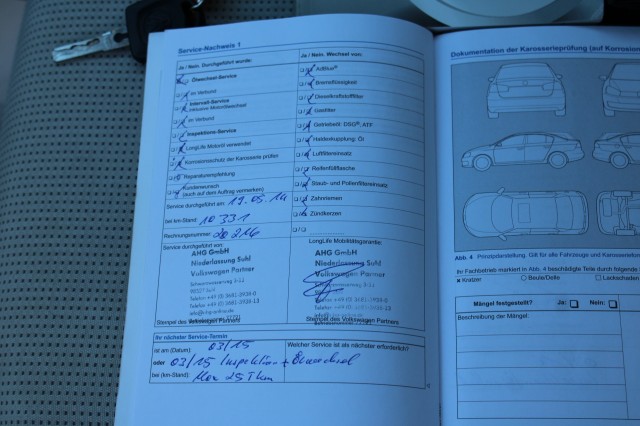 Service-Nachweis 1
Ja / Nein. Durchgeführt wurde:
Ölwechsel-Service
im Verbund
Intervall-Service
inklusive Motorölwechsel
im Verbund
Inspektions-Service
LongLife Motoröl verwendet
Korrosionsschutz der Karosserie prüfen
Reparaturempfehlung
Kundenwunsch
(auch auf dem Auftrag vermerken)
Service durchgeführt am: 19.05.14
bei km-Stand: 10 331
Rechnungsnummer: 20 216
Ja / Nein. Wechsel von:
AdBlue®
Bremsflüssigkeit
Dieselkraftstofffilter
Gasfilter
Getriebeöl: DSG®, ATF
Haldexkupplung: Öl
Luftfiltereinsatz
Reifenfüllflasche
Staub- und Pollenfiltereinsatz
Zahnriemen
Zündkerzen
Service durchgeführt von:
AHG GmbH
Niederlassung Suhl
Volkswagen Partner
Stempel des Volkswagen Partners
LongLife Mobilitätsgarantie:
AHG GmbH
Niederlassung Suhl
Volkswagen Partner
Stempel des Volkswagen Partners
Ihr nächster Service-Termin
ist am (Datum): 03/15
oder 03/15 Inspektion + Ölwechsel
bei (km-Stand): Max 25 T km
Welcher Service ist als nächster erforderlich?
Dokumentation der Karosserieprüfung (auf Korrosion
Abb. 4 Prinzipdarstellung. Gilt für alle Fahrzeuge und Karosseriefor
Ihr Fachbetrieb markiert in Abb. 4 beschädigte Teile durch folgende
Kratzer Beule/Delle Lackschaden
Mängel festgestellt? Ja: Nein:
Beschreibung der Mängel: